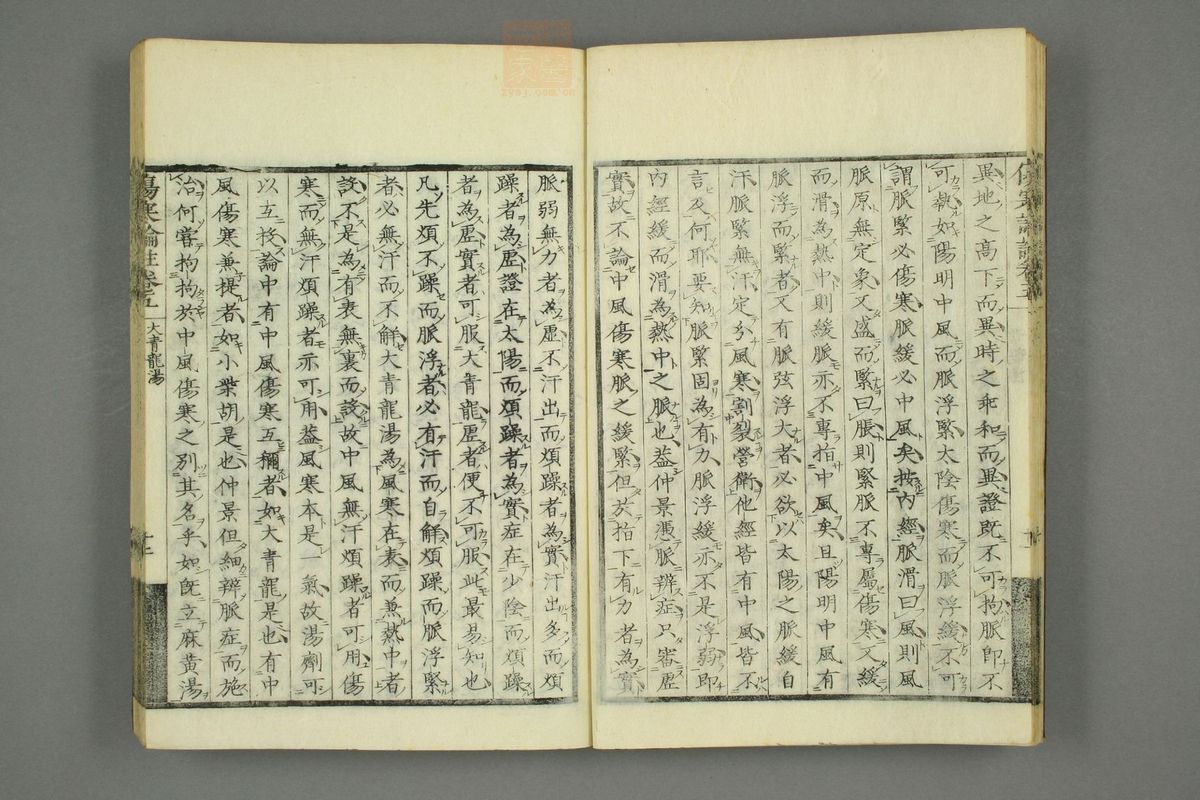 異地之高下而異時之乖和而異證既不可拘脈即不
可執如陽明中風而脈浮緊太陰傷寒而脈浮緩不可
謂脈緊必傷寒脈緩必中風矣按內經脈滑曰風則風
脈原無定象又盛而緊曰脹則緊脈不專屬傷寒又緩
而滑為熱中則緩脈亦不專指中風矣且陽明中風有
脈浮而緊者又有脈弦浮大者必欲以太陽之脈緩自
汗脈緊無汗定分風寒割裂營衛他經皆有中風皆不
言及何耶要知脈緊固為有力脈浮緩亦不是浮弱即
內經緩而滑為熱中之脈也蓋仲景憑脈辨症只審虛
實故不論中風傷寒脈之緩緊但於指下有力者為實
脈弱無力者為虛不汗出而煩躁者為實汗出多而煩
躁者為虛證在太陽而煩躁者為實症在少陰而煩躁
者為虛實者可服大青龍虛者便不可服此最易知也
凡先煩不躁而脈浮者必有汗而自解煩躁而脈浮緊
者必無汗而不解大青龍湯為風寒在表而兼熱中者
設不是為有表無裏而設故中風無汗煩躁者可用傷
寒而無汗煩躁者亦可用蓋風寒本是一氣故湯劑可
以互投論中有中風傷寒互稱者如大青龍是也有中
風傷寒兼提者如小柴胡是也仲景但細辨脈症而施
治何嘗拘拘於中風傷寒之別其名乎如既立麻黃湯
傷寒論註卷之五 大青龍湯
zysj.com.cn